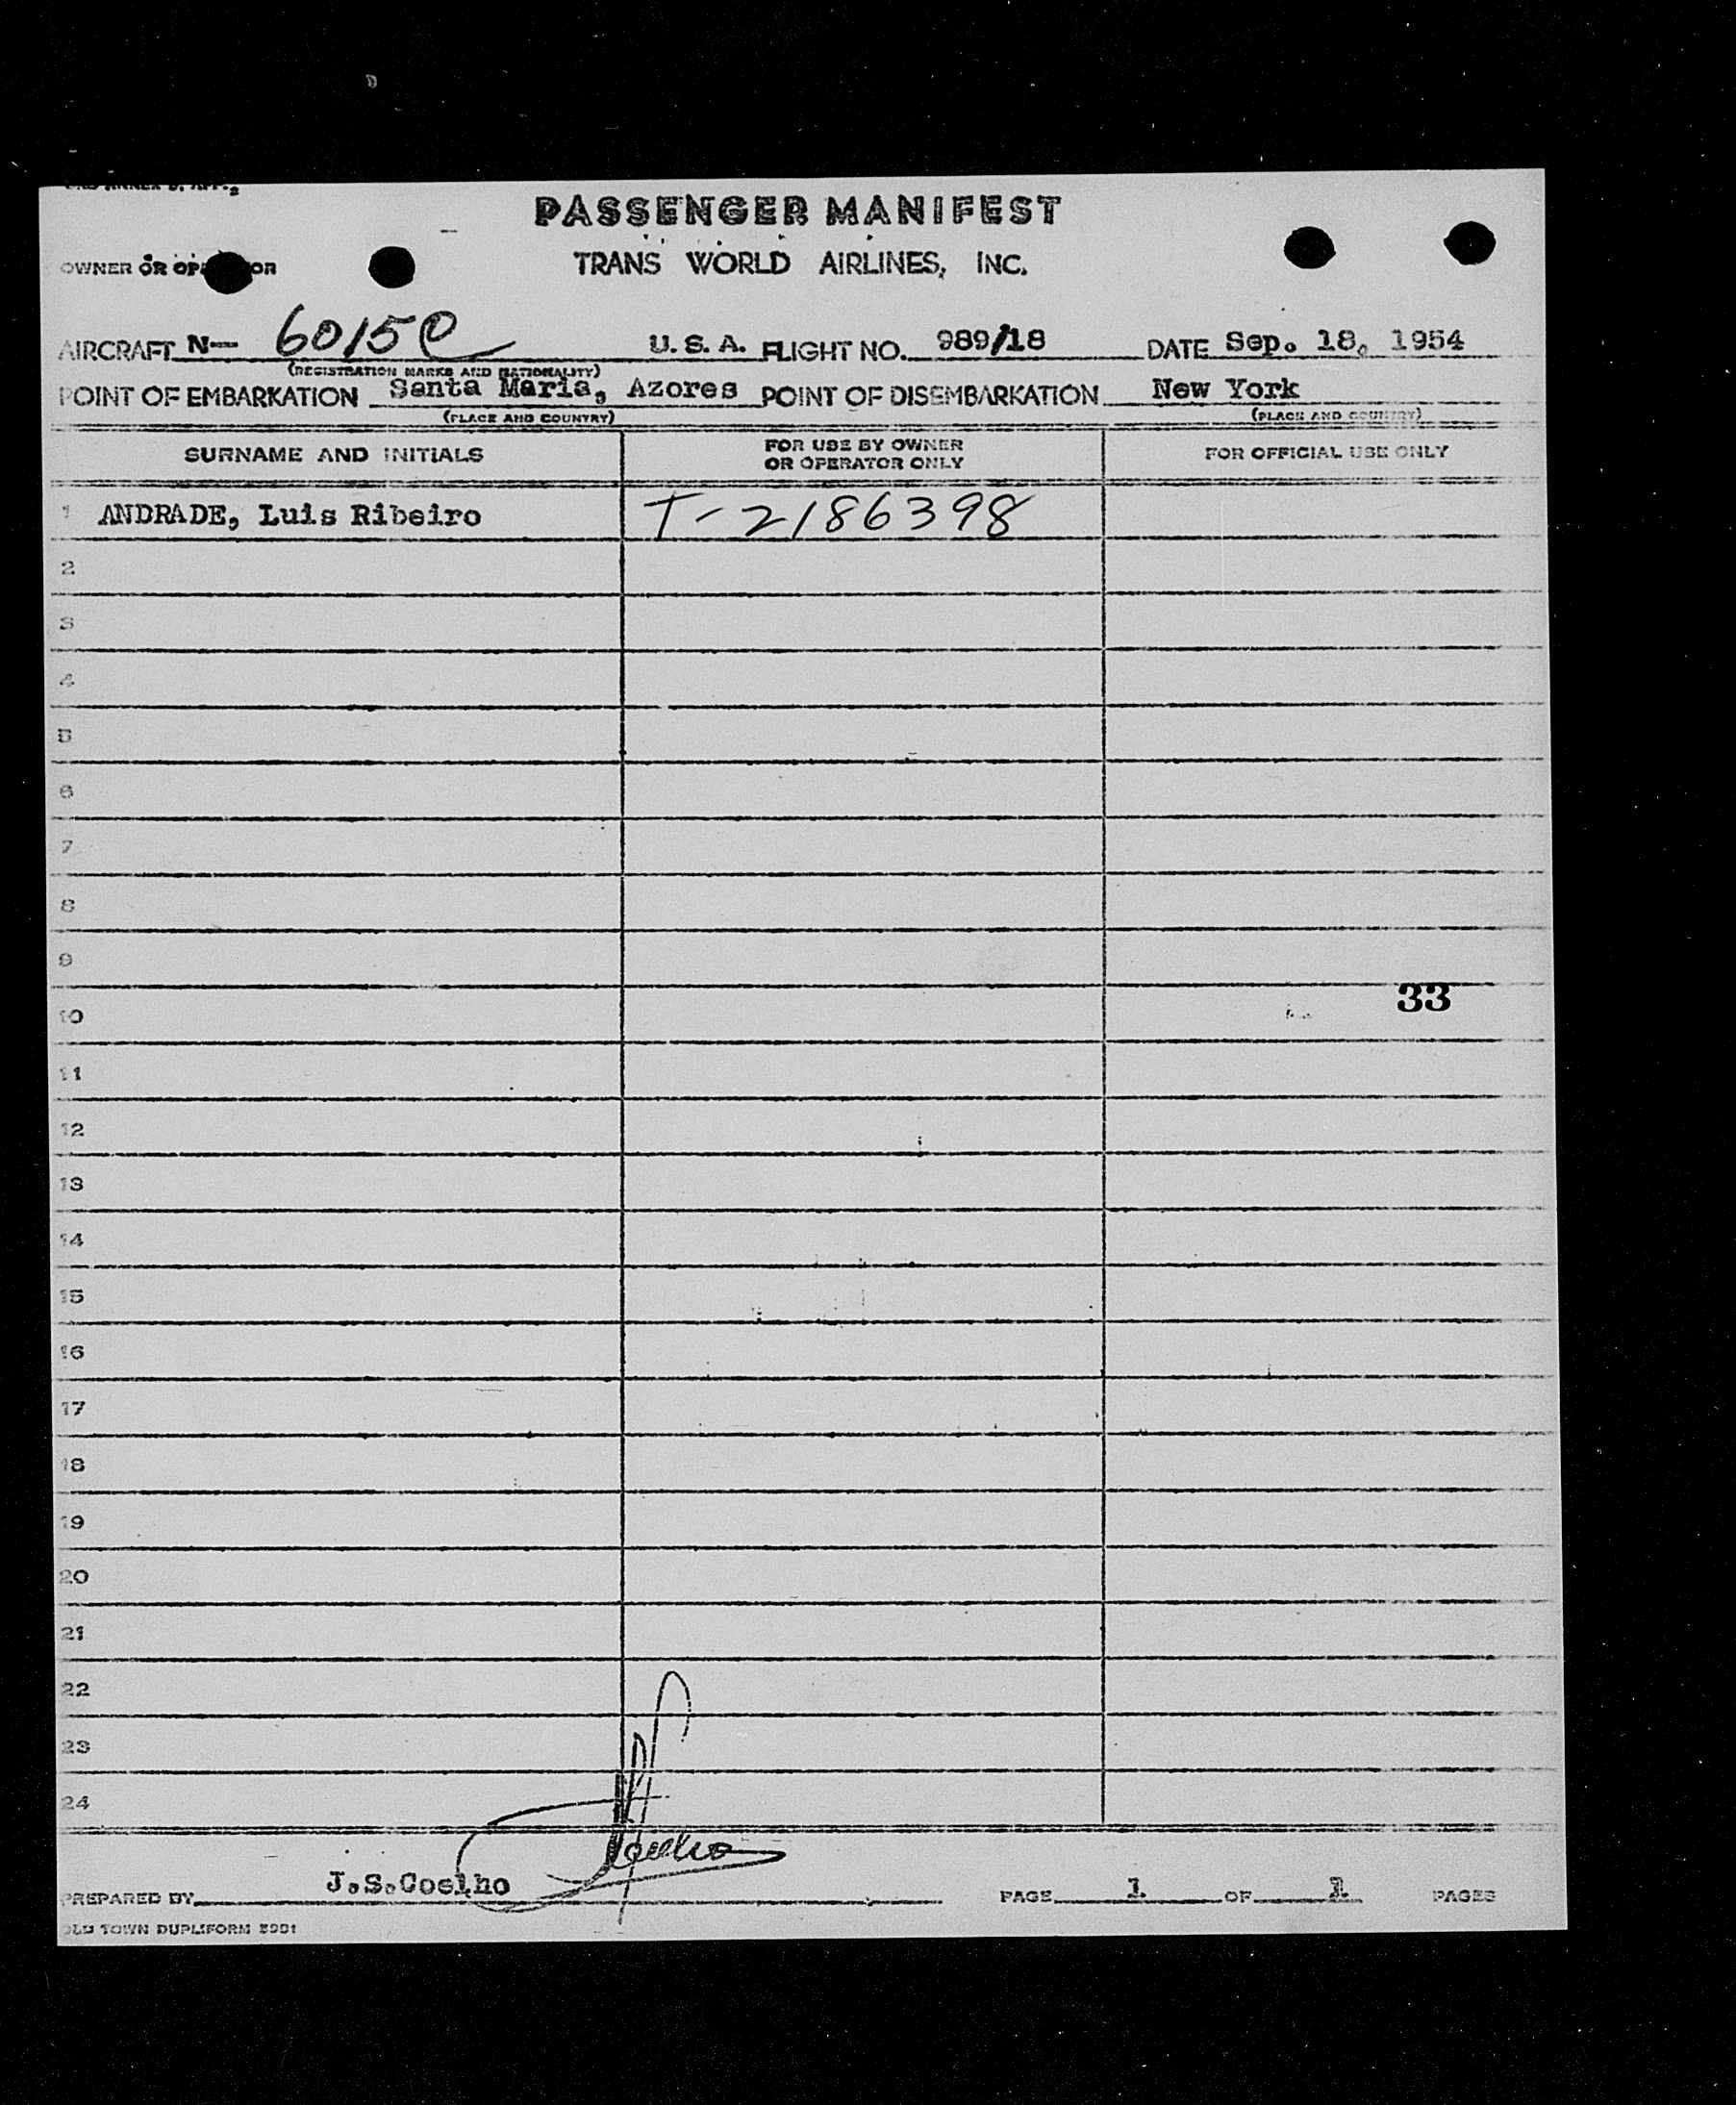 PASSENGER MANIFEST
OWNER OR OPERATOR TRANS WORLD AIRLINES, INC.
AIRCRAFT N- 6015C U.S.A. FLIGHT NO. 989/18 DATE Sep. 18, 1954
(REGISTRATION MARKS AND NATIONALITY)
POINT OF EMBARKATION Santa Maria, Azores POINT OF DISEMBARKATION New York
(PLACE AND COUNTRY) (PLACE AND COUNTRY)
SURNAME AND INITIALS FOR USE BY OWNER OR OPERATOR ONLY FOR OFFICIAL USE ONLY
1 ANDRADE, Luis Ribeiro T-2186398
2
3
4
5
6
7
8
9
33
10
11
12
13
14
15
16
17
18
19
20
21
22
23
24
Coelho
PREPARED BY J.S.Coelho PAGE 1 OF 1 PAGES
OLD TOWN DUPLIFORM